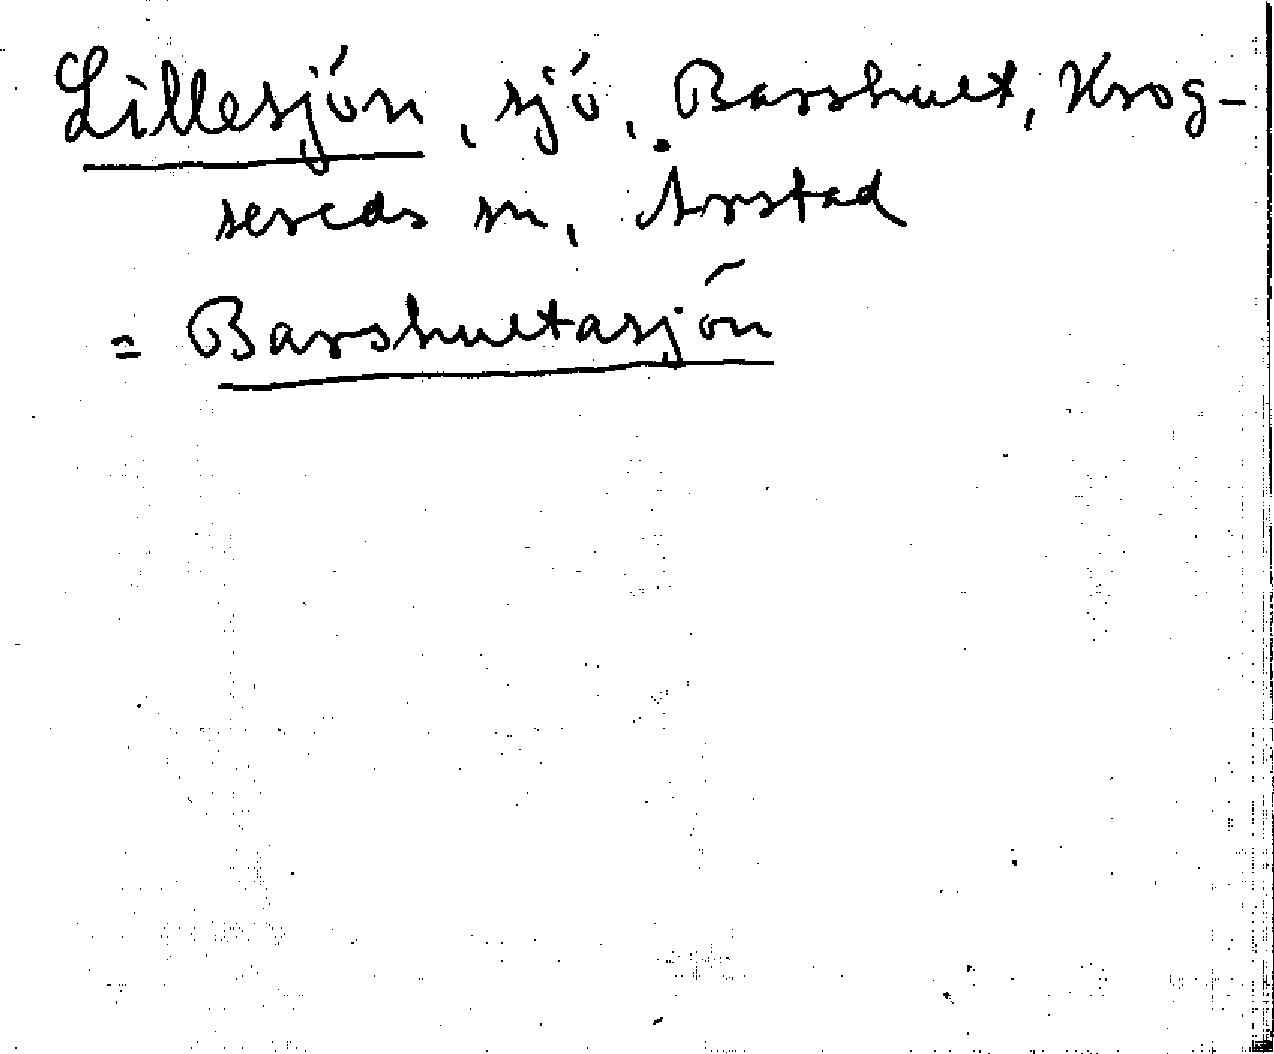 Lillesjön, sjö, Barshult, Krog-
sereds sn, Årstad
= Barshultasjön